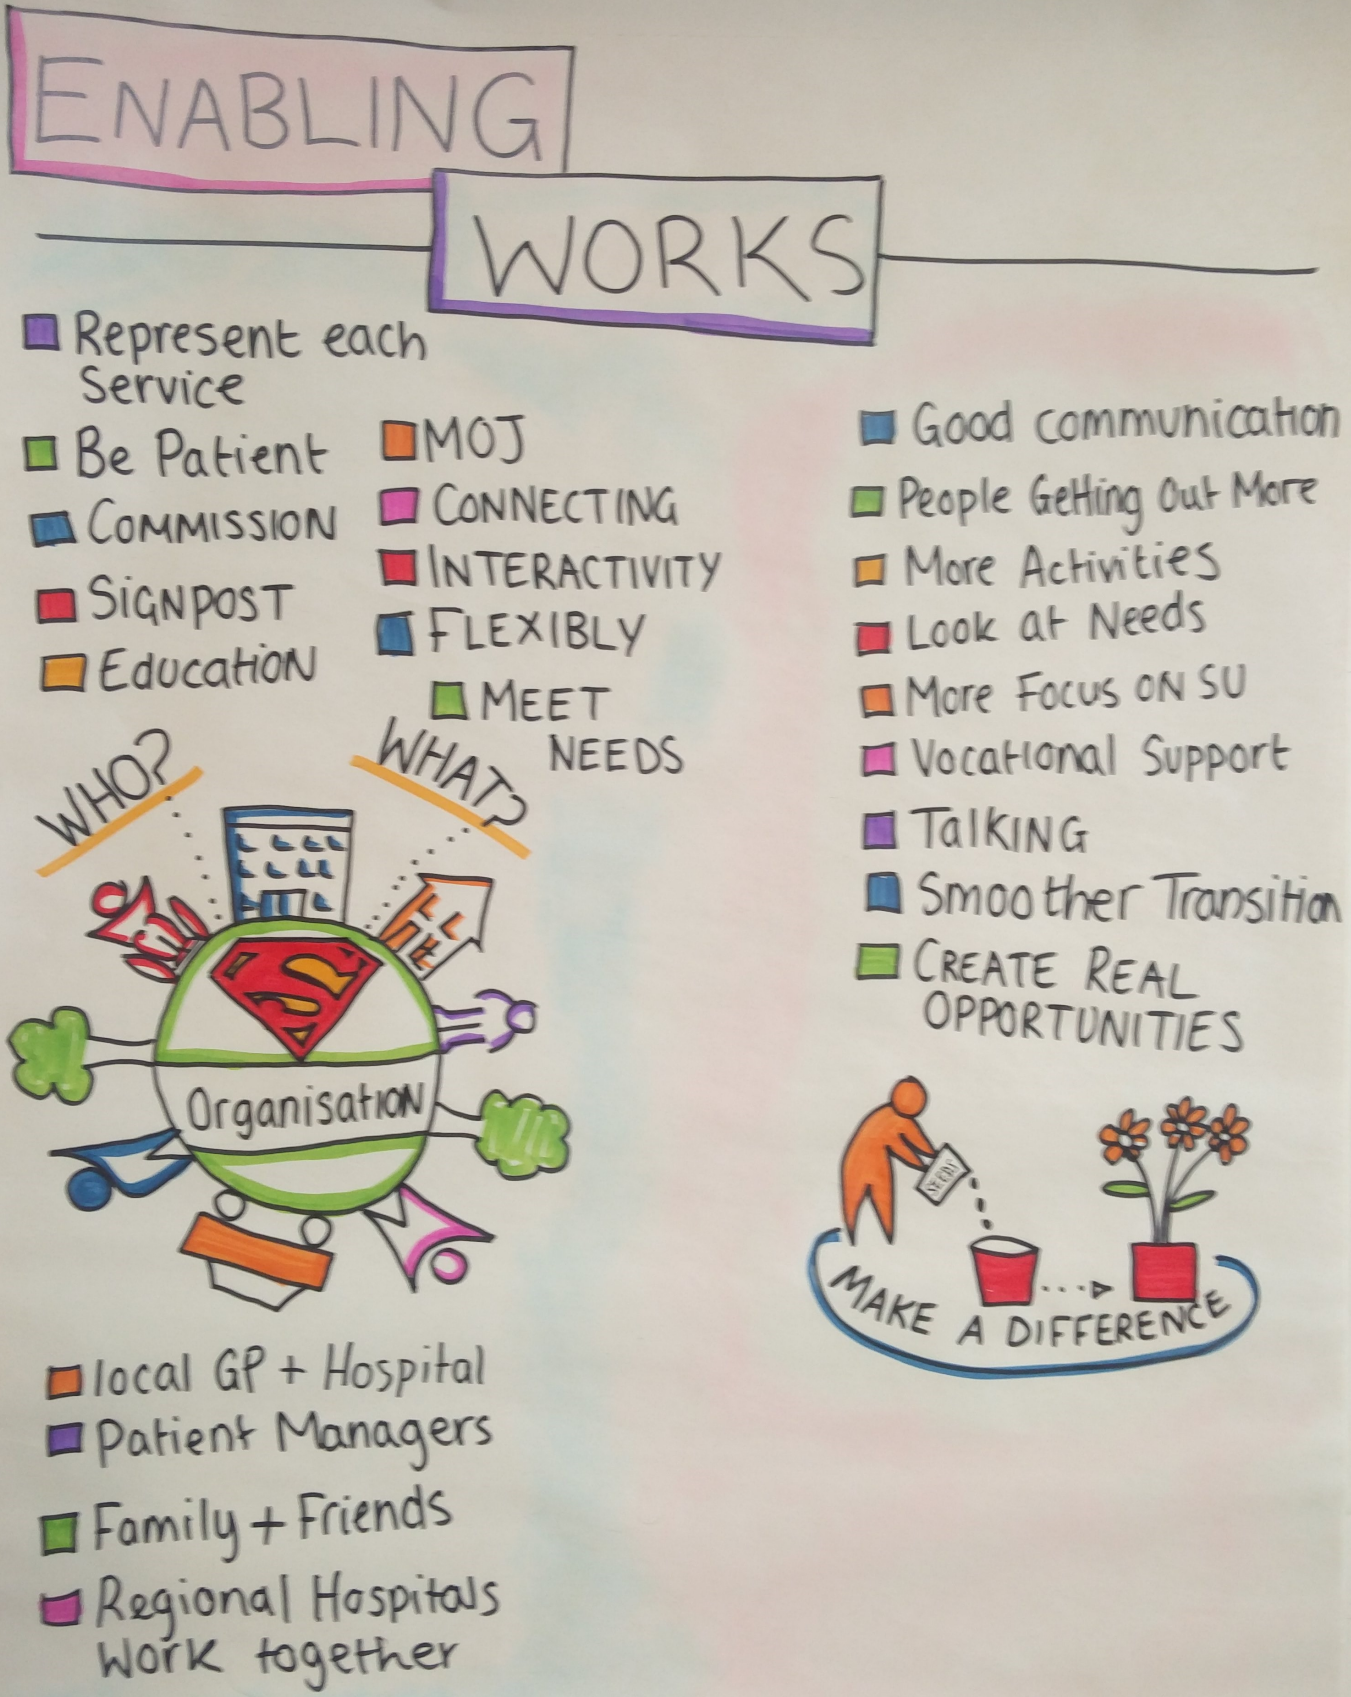 ENABLING
WORKS
Represent each
Service
Be Patient
COMMISSION
SIGNPOST
Education
MOJ
CONNECTING
INTERACTIVITY
FLEXIBLY
MEET
NEEDS
WHO?
WHAT?
S
Organisation
local GP + Hospital
Patient Managers
Family + Friends
Regional Hospitals
Work together
Good communication
People Getting Out More
More Activities
Look at Needs
More Focus ON SU
Vocational Support
TalKING
Smoother Transition
CREATE REAL
OPPORTUNITIES
SEEDS
MAKE A DIFFERENCE